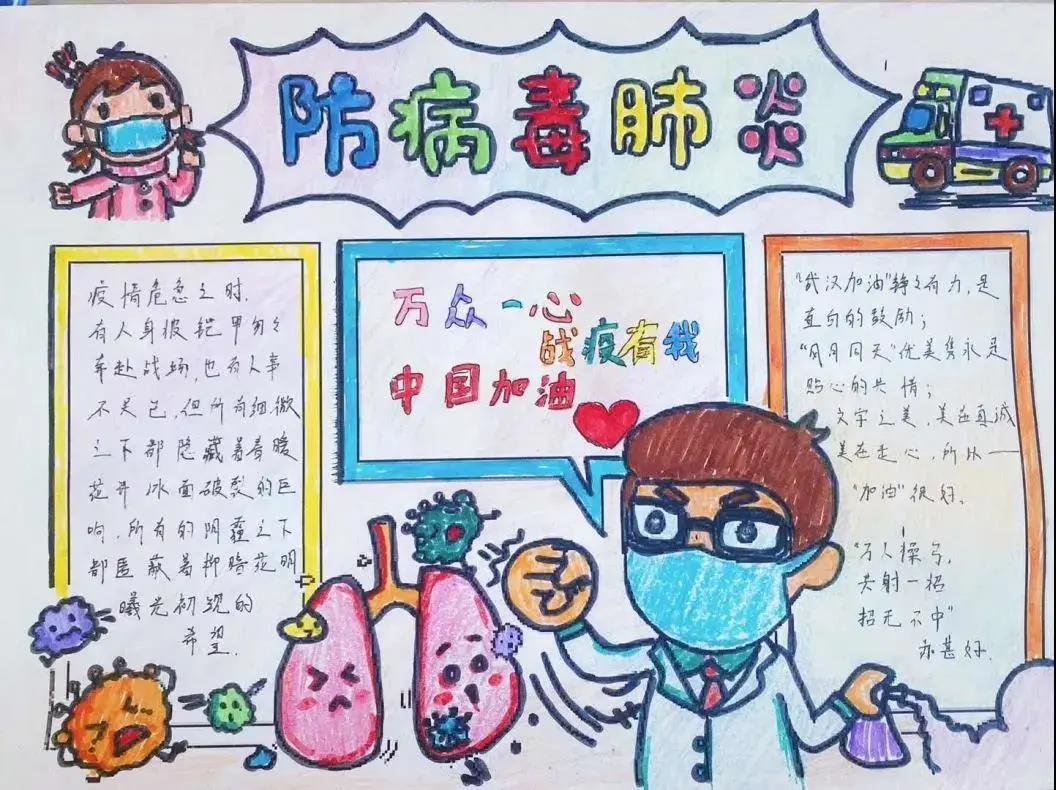 防病毒肺炎
疫情危急之时,
有人身披铠甲匆々
奔赴战场,也有人事
不关己,但所有细微
之下都隐藏着春暖
花开冰面破裂的巨
响,所有的阴霾之下
都匿蔽着柳暗花明
曦光初现的
希望.
万众一心
战疫有我
中国加油
"武汉加油"铮々有力,是
直白的鼓励;
"风月同天"优美隽永是
贴心的共情;
文字之美,美在真诚
美在走心,所以——
"加油"很好,
"万人操弓,
共射一招
招无不中"
亦甚好.